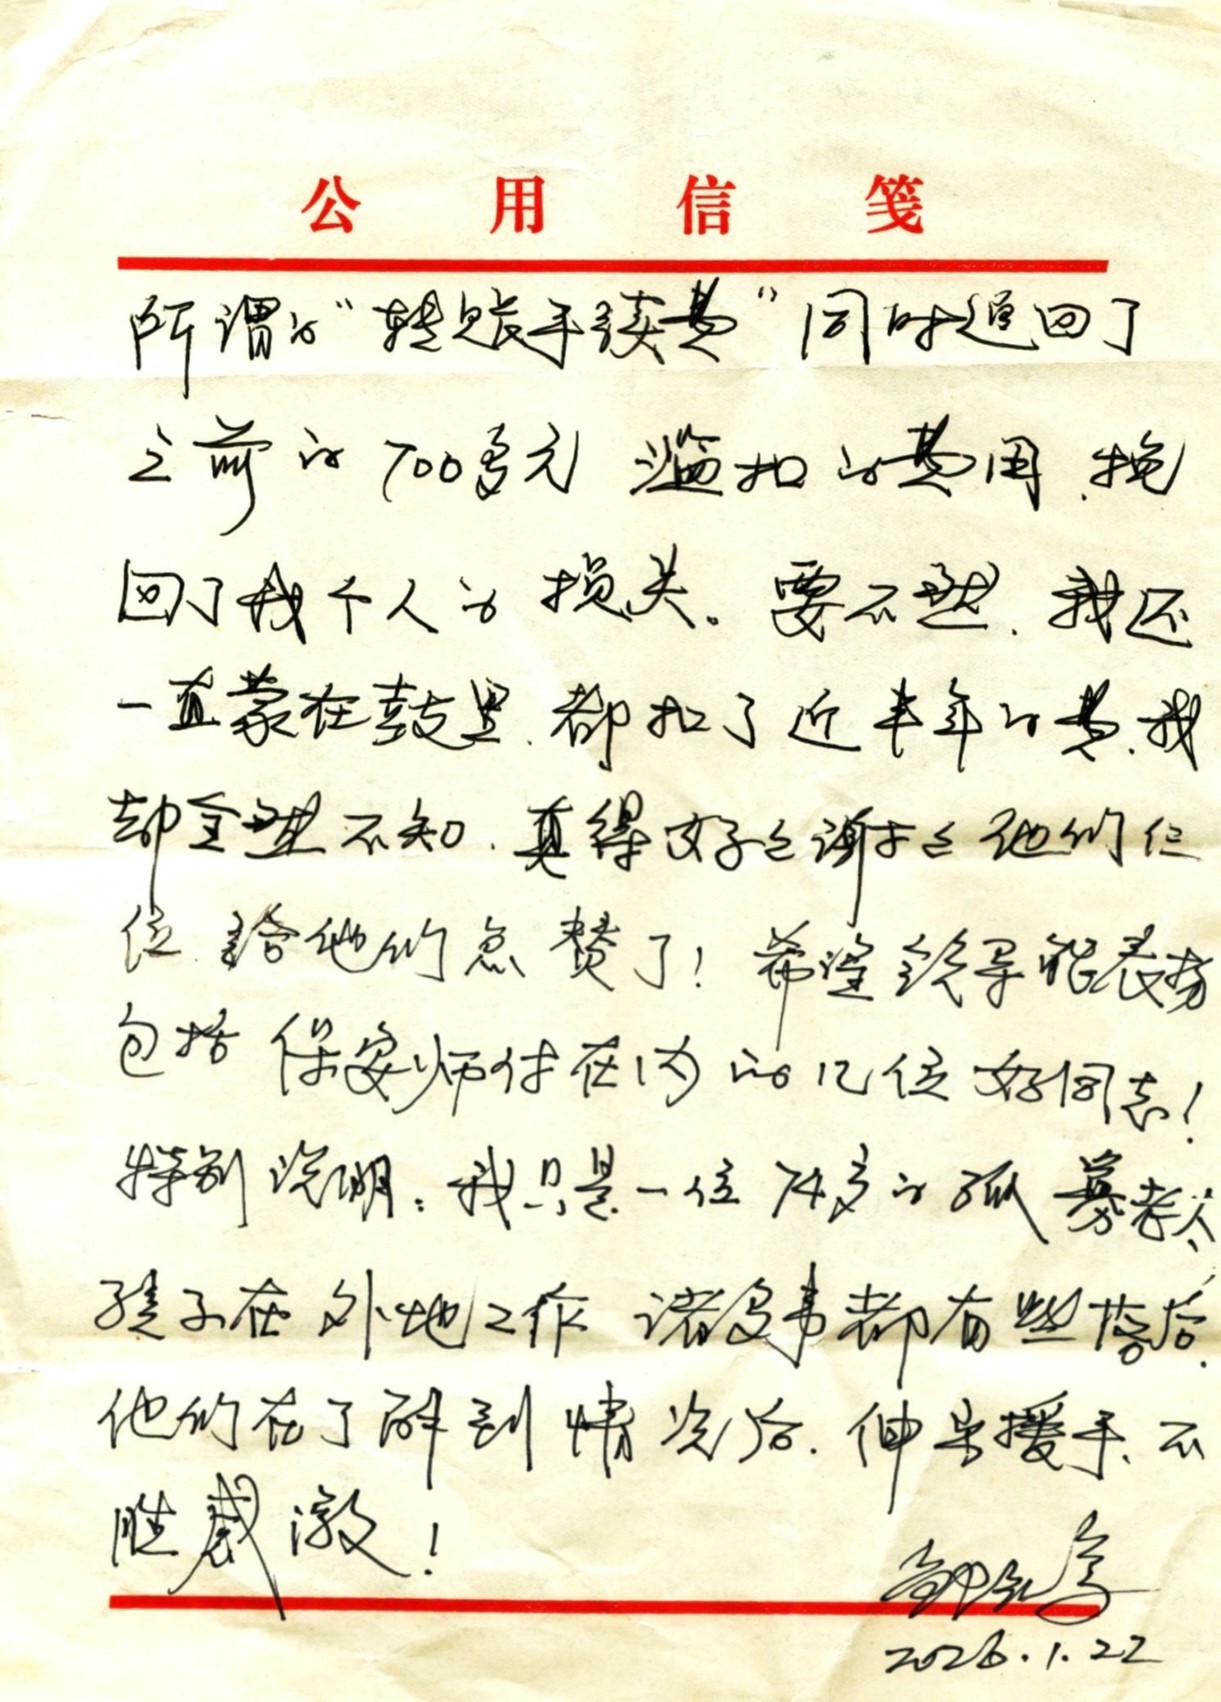 公用信笺
所谓的“转账手续费”同时退回了
之前的700多元滥扣的费用,挽
回了我个人的损失。要不然,我还
一直蒙在鼓里,都扣了近半年的费,我
却全然不知,真得好好谢谢他们仨
位,给他们点赞了!希望领导能表扬
包括保安师付在内的几位好同志!
特别说明:我只是一位74岁的孤寡老人,
孩子在外地工作,诸多事都有些落后.
他们在了解到情况后,伸出援手,不
胜感激!
2026.1.22